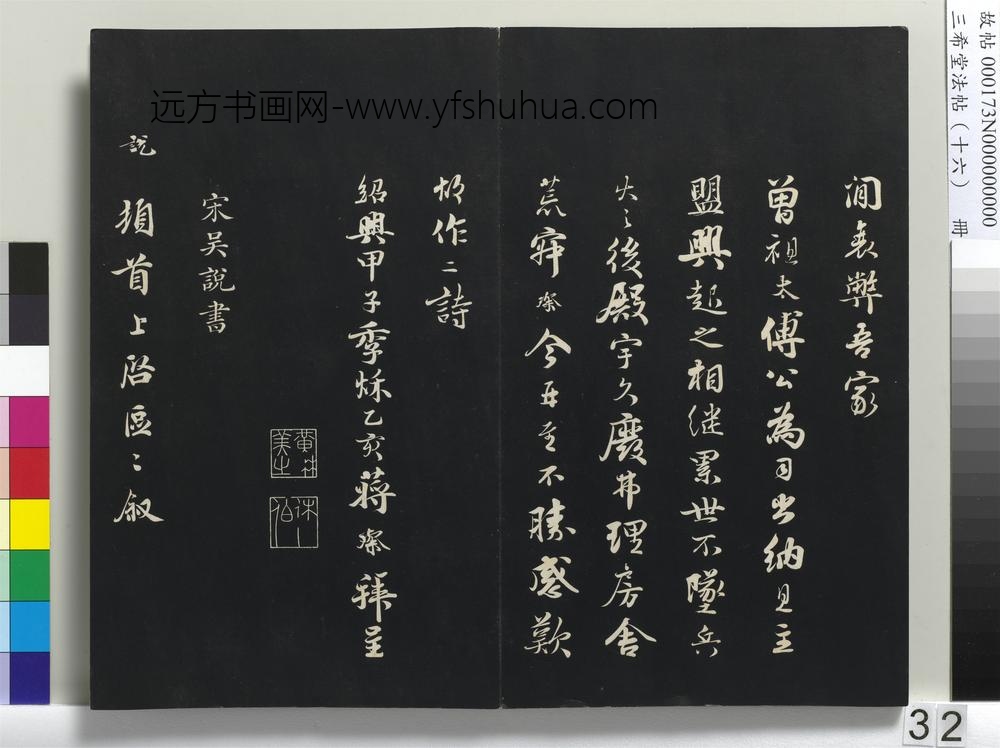 故帖 000173N000000000
三希堂法帖(十六) 冊
远方书画网-www.yfshuhua.com
間衰弊吾家
曾祖太傅公為司出納且主
盟興起之相继累世不墜兵
火之後殿宇久廢弗理房舍
荒穽璨今再至不勝感歎
作二詩
紹興甲子季秌乙亥蔣璨拜呈
宋吳說書
說頓首上啓區〻叙
32